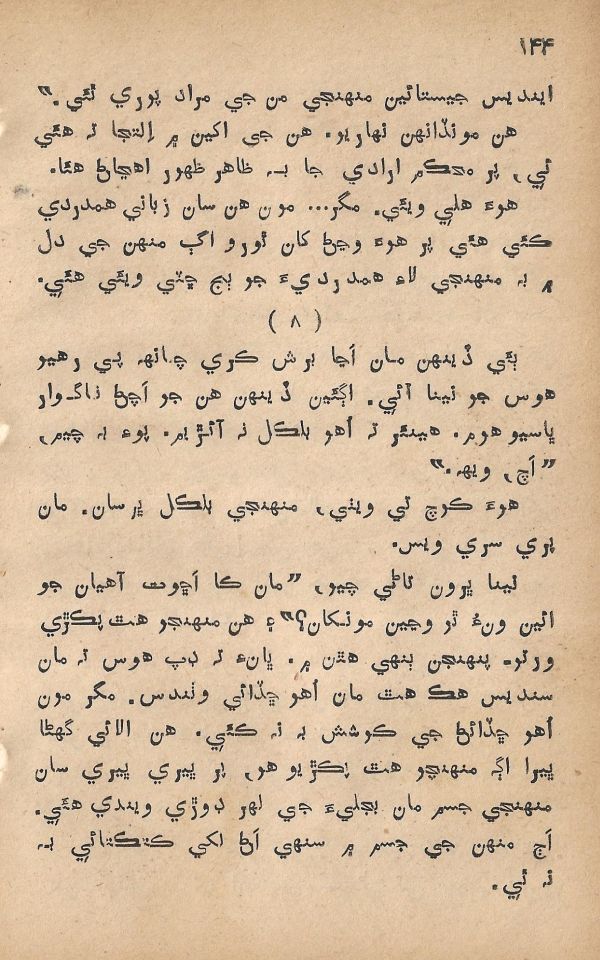 ۱۴۴
اينديس جيستائين منهنجي من جي مراد پوري ٿئي.”
هن مونڏانهن نهاريو. هن جي اکين ۾ اِلتجا نہ هئي
ئي، پر محڪم ارادي جا بہ ظاهر ظهور اهڃاڻ هئا.
هوءَ هلي ويئي. مگر... مون هن سان زباني همدردي
ڪئي هئي پر هوءَ وڃڻ کان ٿورو اڳ منهن جي دل
۾ بہ منهنجي لاءِ همدرديءَ جو ٻج ڇٽي ويئي هئي.
( ۸ )
ٻئي ڏينهن مان اَڃا برش ڪري چانهہ پي رهيو
هوس جو نينا آئي. اڳئين ڏينهن هن جو اَچڻ ناگوار
ڀاسيو هوم. هينئر تہ اُهو بلڪل نہ آئڙيم. پوءِ بہ چيم،
”اَچ، ويهہ.”
هوءَ ڪوچ تي ويٺي، منهنجي بلڪل ڀرسان. مان
پري سري ويس.
نينا ڀرون تاڻي چيو، ”مان ڪا اَڇوت آهيان جو
ائين ونءُ ٿو وڃين مونکان؟” ۽ هن منهنجو هٿ پڪڙي
ورتو۔ پنهنجن ٻنهي هٿن ۾. ڀانءِ تہ ڊپ هوس تہ مان
سنديس هڪ هٿ مان اُهو ڇڏائي وٺندس. مگر مون
اُهو ڇڏائڻ جي ڪوشش بہ نہ ڪئي. هن الائي گهڻا
ڀيرا اڳہ منهنجو هٿ پڪڙيو هو، پر ڀيري ڀيري سان
منهنجي جسم مان بجليءَ جي لهر ڊوڙي ويندي هئي.
اَڄ منهن جي جسم ۾ سنهي اَڻ لکي ڪتڪتائي بہ
نہ ٿي.